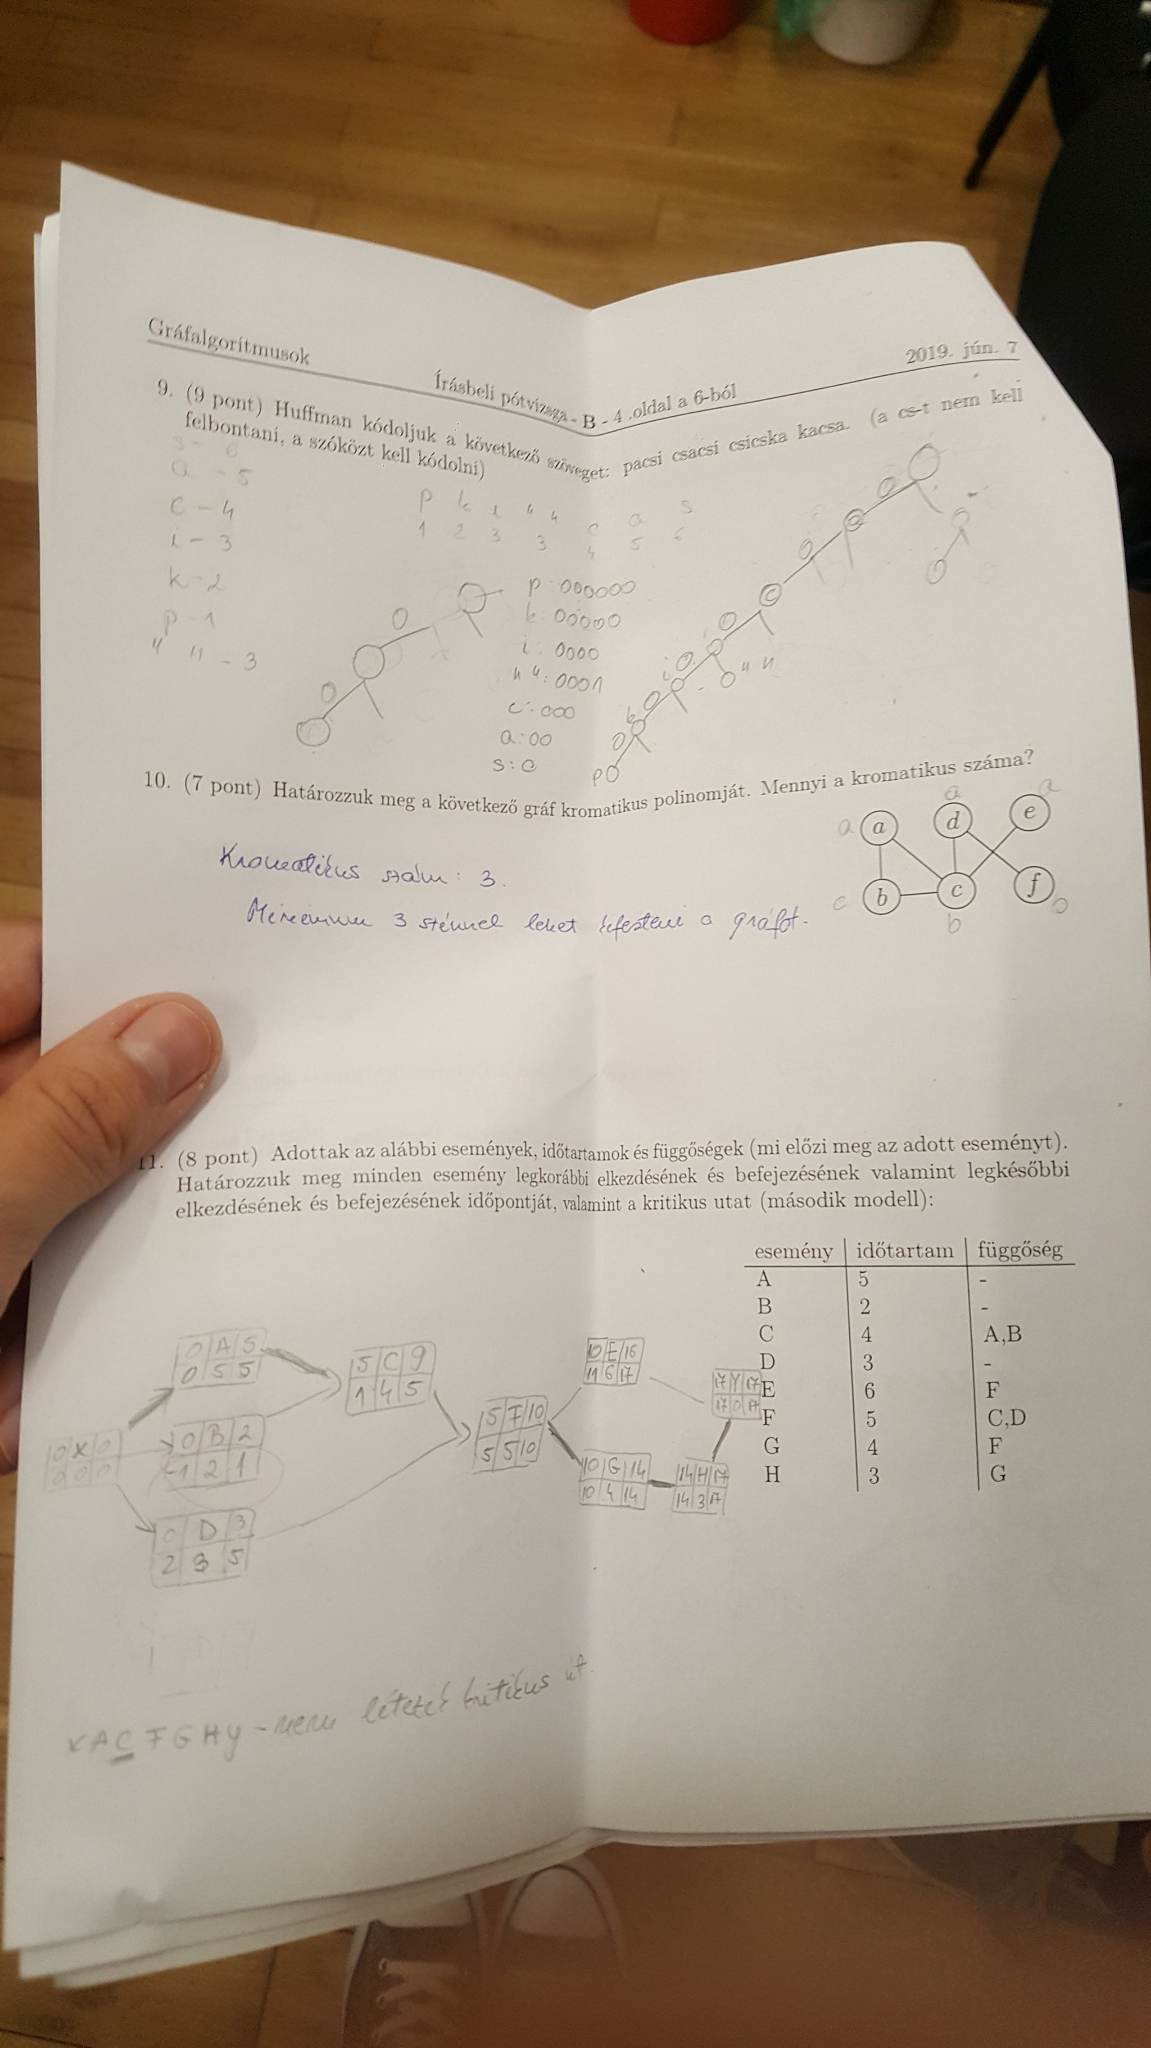 Gráfalgoritmusok
Írásbeli pótvizsga - B - 4 .oldal a 6-ból
2019. jún. 7
9. (9 pont) Huffman kódoljuk a következő szöveget: pacsi csacsi csicska kacsa. (a cs-t nem kell
felbontani, a szóközt kell kódolni)
s - 6
a - 5
c - 4
i - 3
k - 2
p - 1
" " - 3
p k i " " c a s
1 2 3 3 4 5 6
p: 000000
k: 00000
i: 0000
" ": 0001
c: 000
a: 00
s: 0
0
0
0
0
0
0
0
0
a
c
i
" "
k
p
10. (7 pont) Határozzuk meg a következő gráf kromatikus polinomját. Mennyi a kromatikus száma?
a a a
a d e
b c f
c b b
Kromatikus szám: 3.
Minimum 3 színnel lehet kifesteni a gráfot.
11. (8 pont) Adottak az alábbi események, időtartamok és függőségek (mi előzi meg az adott eseményt).
Határozzuk meg minden esemény legkorábbi elkezdésének és befejezésének valamint legkésőbbi
elkezdésének és befejezésének időpontját, valamint a kritikus utat (második modell):
esemény időtartam függőség
A 5 -
B 2 -
C 4 A,B
D 3 -
E 6 F
F 5 C,D
G 4 F
H 3 G
0 X 0
0 0 0
0 A 5
0 5 5
0 B 2
-1 2 1
0 D 3
2 3 5
5 C 9
1 4 5
5 F 10
5 5 10
10 E 16
11 6 17
10 G 14
10 4 14
14 H 17
14 3 17
17 Y 17
17 0 17
XACFGHY - nem létezik kritikus út.